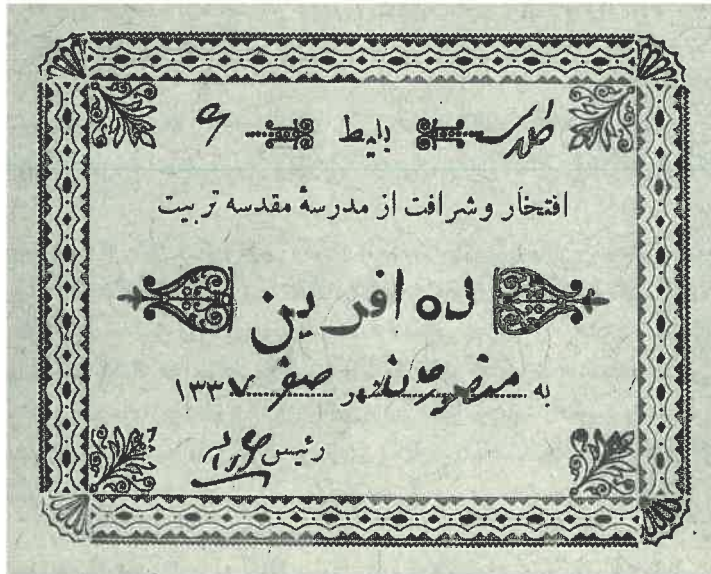 بلیط
افتخار و شرافت از مدرسهٔ مقدسه تربیت
ده افرین
به شهر صفر ۱۳۳۷
رئیس